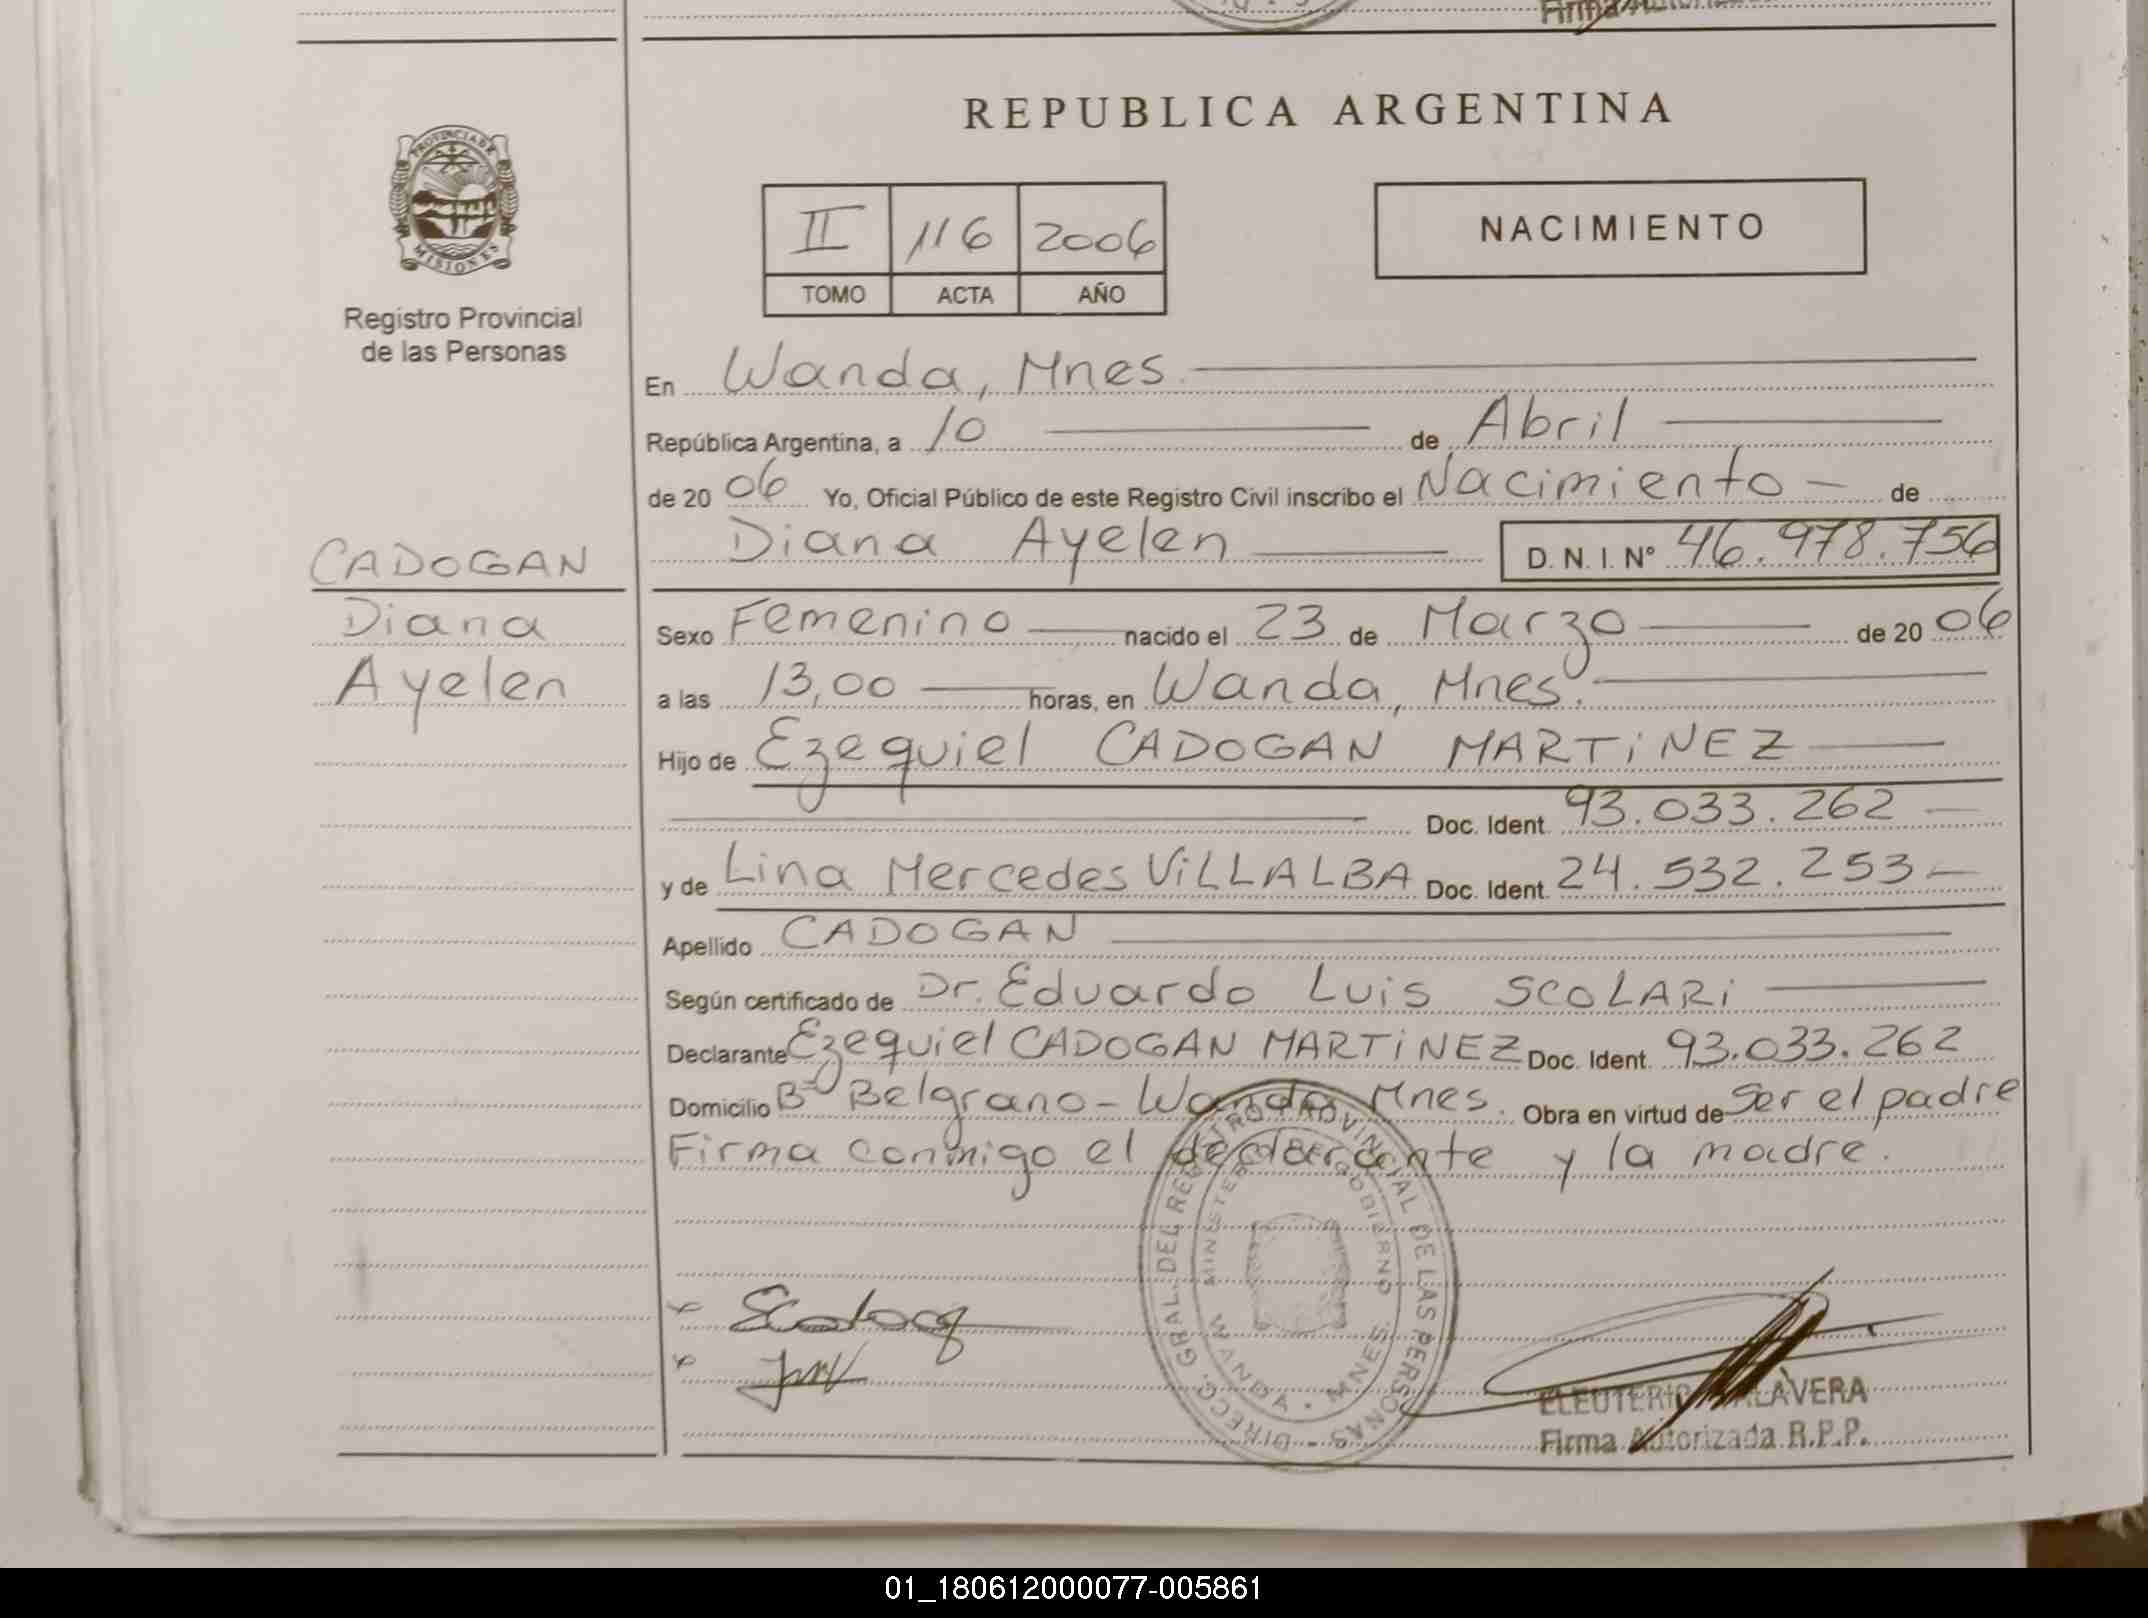 REPUBLICA ARGENTINA
PROVINCIA DE
MISIONES
Registro Provincial
de las Personas
II 116 2006
TOMO ACTA AÑO
NACIMIENTO
En Wanda, Mnes.
República Argentina, a 10 de Abril
de 2006 Yo, Oficial Público de este Registro Civil inscribo el Nacimiento de
Diana Ayelen D. N. I. Nº 46.978.756
CADOGAN
Diana
Ayelen
Sexo Femenino nacido el 23 de Marzo de 2006
a las 13,00 horas, en Wanda, Mnes.
Hijo de Ezequiel CADOGAN MARTiNEZ
Doc. Ident. 93.033.262
y de Lina Mercedes ViLLALBA Doc. Ident. 24.532.253
Apellido CADOGAN
Según certificado de Dr. Eduardo Luis SCOLARi
Declarante Ezequiel CADOGAN MARTiNEZ Doc. Ident. 93.033.262
Domicilio Bº Belgrano - Wanda Mnes. Obra en virtud de Ser el padre
Firma conmigo el declarante y la madre.
DIRECC. GRAL. DEL REGISTRO PROVINCIAL DE LAS PERSONAS
MINISTERIO DE GOBIERNO
WANDA - MNES
ELEUTERIO
Firma Autorizada R.P.P.
01_180612000077-005861